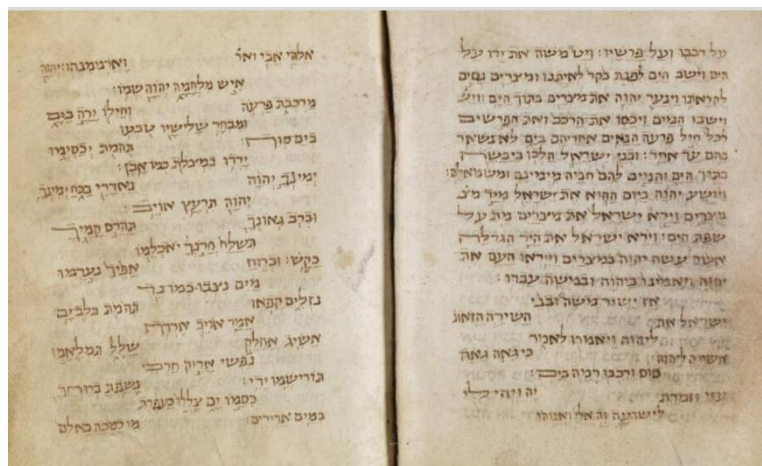 על רכבו ועל פרשיו: ויט משה את ידו על
הים וישב הים לפנת בקר לאיתנו ומצרים נסים
לקראתו וינער יהוה את מצרים בתוך הים: ויש
וישבו המים ויכסו את הרכב ואת הפרשים
לכל חיל פרעה הבאים אחריהם בים לא נשאר
בהם עד אחד: ובני ישראל הלכו ביבשה
בתוך הים והמים להם חמה מימינם ומשמאלם:
ויושע יהוה ביום ההוא את ישראל מיד מצ
מצרים וירא ישראל את מצרים מת על
שפת הים: וירא ישראל את היד הגדלה
אשר עשה יהוה במצרים וייראו העם את
יהוה ויאמינו ביהוה ובמשה עבדו:
אז ישיר משה ובני
ישראל את השירה הזאת
ליהוה ויאמרו לאמר
אשירה ליהוה כי גאה גאה
סוס ורכבו רמה בים:
עזי וזמרת יה ויהי לי
לישועה זה אלי ואנוהו
אלהי אבי וארֹ וארממנהו: יהוה
איש מלחמה יהוה שמו:
מרכבת פרעה וחילו ירה בים
ומבחר שלישיו טבעו
בים סוף: תהמת יכסימו
ירדו במצולת כמו אבן:
ימינך יהוה נאדרי בכח ימינך
יהוה תרעץ אויב:
וברב גאונך תהרס קמיך
תשלח חרנך יאכלמו
כקש: וברוח אפיך נערמו
מים נצבו כמו נד
נזלים קפאו תהמת בלב ים
אמר אויב ארדף
אשיג אחלק שלל תמלאמו
נפשי אריק חרבי
תורישמו ידי: נשפת ברוחך
כסמו ים צללו כעפרת
במים אדירים: מי כמכה באלם